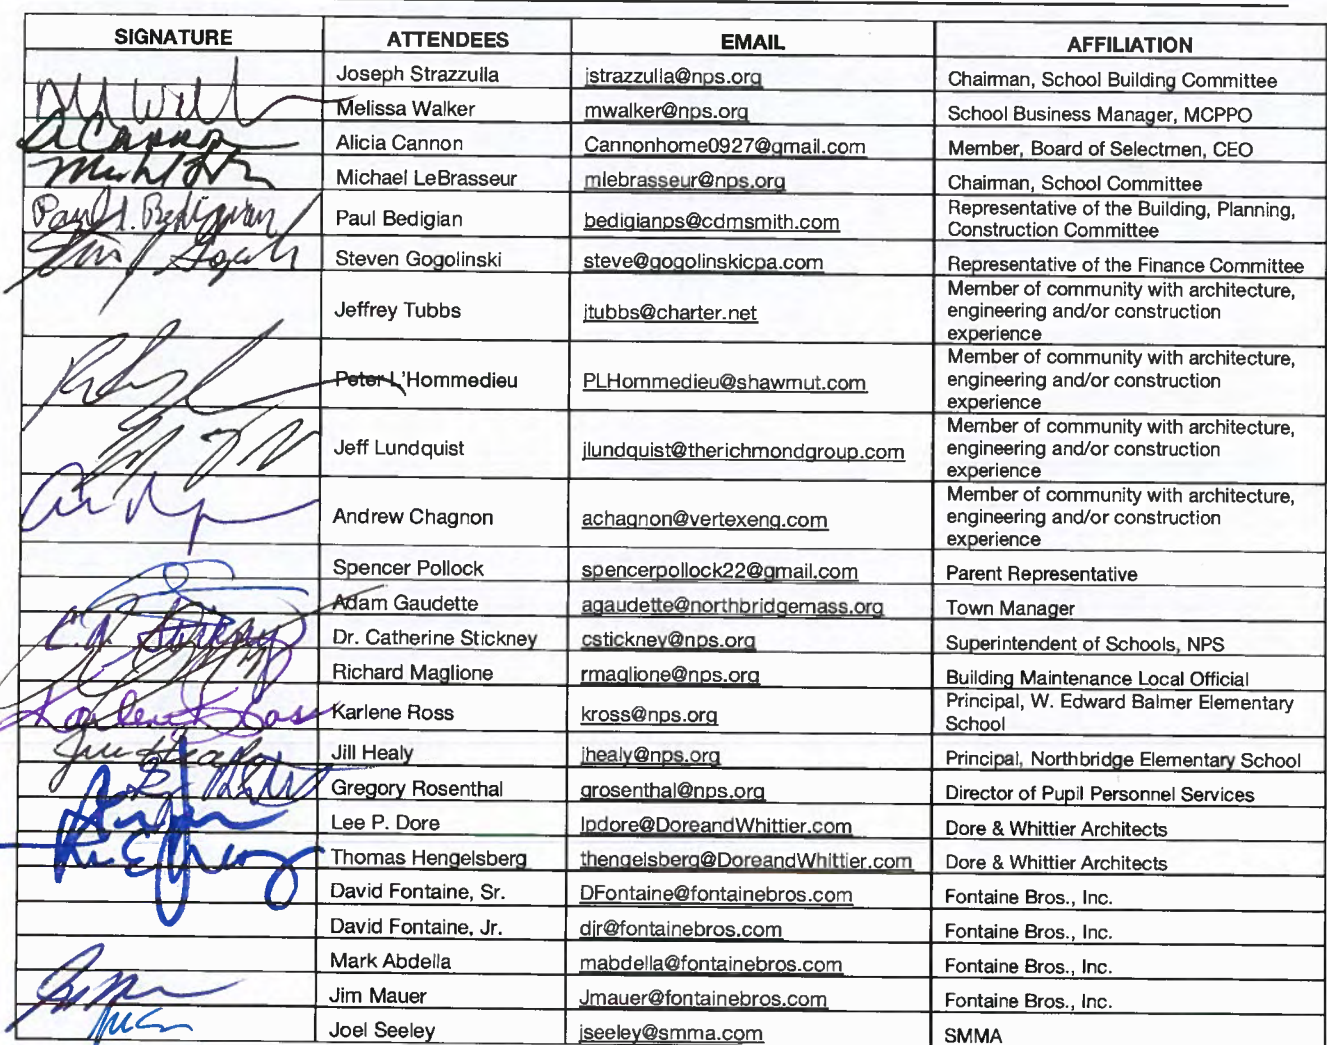 SIGNATURE ATTENDEES EMAIL AFFILIATION
Joseph Strazzulla jstrazzulla@nps.org Chairman, School Building Committee
Melissa Walker mwalker@nps.org School Business Manager, MCPPO
A Cannon Alicia Cannon Cannonhome0927@gmail.com Member, Board of Selectmen, CEO
Michael LeBrasseur mlebrasseur@nps.org Chairman, School Committee
Paul Bedigian Paul Bedigian bedigianps@cdmsmith.com Representative of the Building, Planning,
Construction Committee
Steven Gogolinski steve@gogolinskicpa.com Representative of the Finance Committee
Jeffrey Tubbs jtubbs@charter.net Member of community with architecture,
engineering and/or construction
experience
Peter L'Hommedieu PLHommedieu@shawmut.com Member of community with architecture,
engineering and/or construction
experience
Jeff Lundquist jlundquist@therichmondgroup.com Member of community with architecture,
engineering and/or construction
experience
Andrew Chagnon achagnon@vertexeng.com Member of community with architecture,
engineering and/or construction
experience
Spencer Pollock spencerpollock22@gmail.com Parent Representative
Adam Gaudette agaudette@northbridgemass.org Town Manager
Dr. Catherine Stickney cstickney@nps.org Superintendent of Schools, NPS
Richard Maglione rmaglione@nps.org Building Maintenance Local Official
Karlene Ross Karlene Ross kross@nps.org Principal, W. Edward Balmer Elementary
School
Jill Healy jhealy@nps.org Principal, Northbridge Elementary School
Gregory Rosenthal grosenthal@nps.org Director of Pupil Personnel Services
Lee P. Dore lpdore@DoreandWhittier.com Dore & Whittier Architects
Thomas Hengelsberg thengelsberg@DoreandWhittier.com Dore & Whittier Architects
David Fontaine, Sr. DFontaine@fontainebros.com Fontaine Bros., Inc.
David Fontaine, Jr. djr@fontainebros.com Fontaine Bros., Inc.
Mark Abdella mabdella@fontainebros.com Fontaine Bros., Inc.
Jim Mauer Jmauer@fontainebros.com Fontaine Bros., Inc.
Joel Seeley jseeley@smma.com SMMA